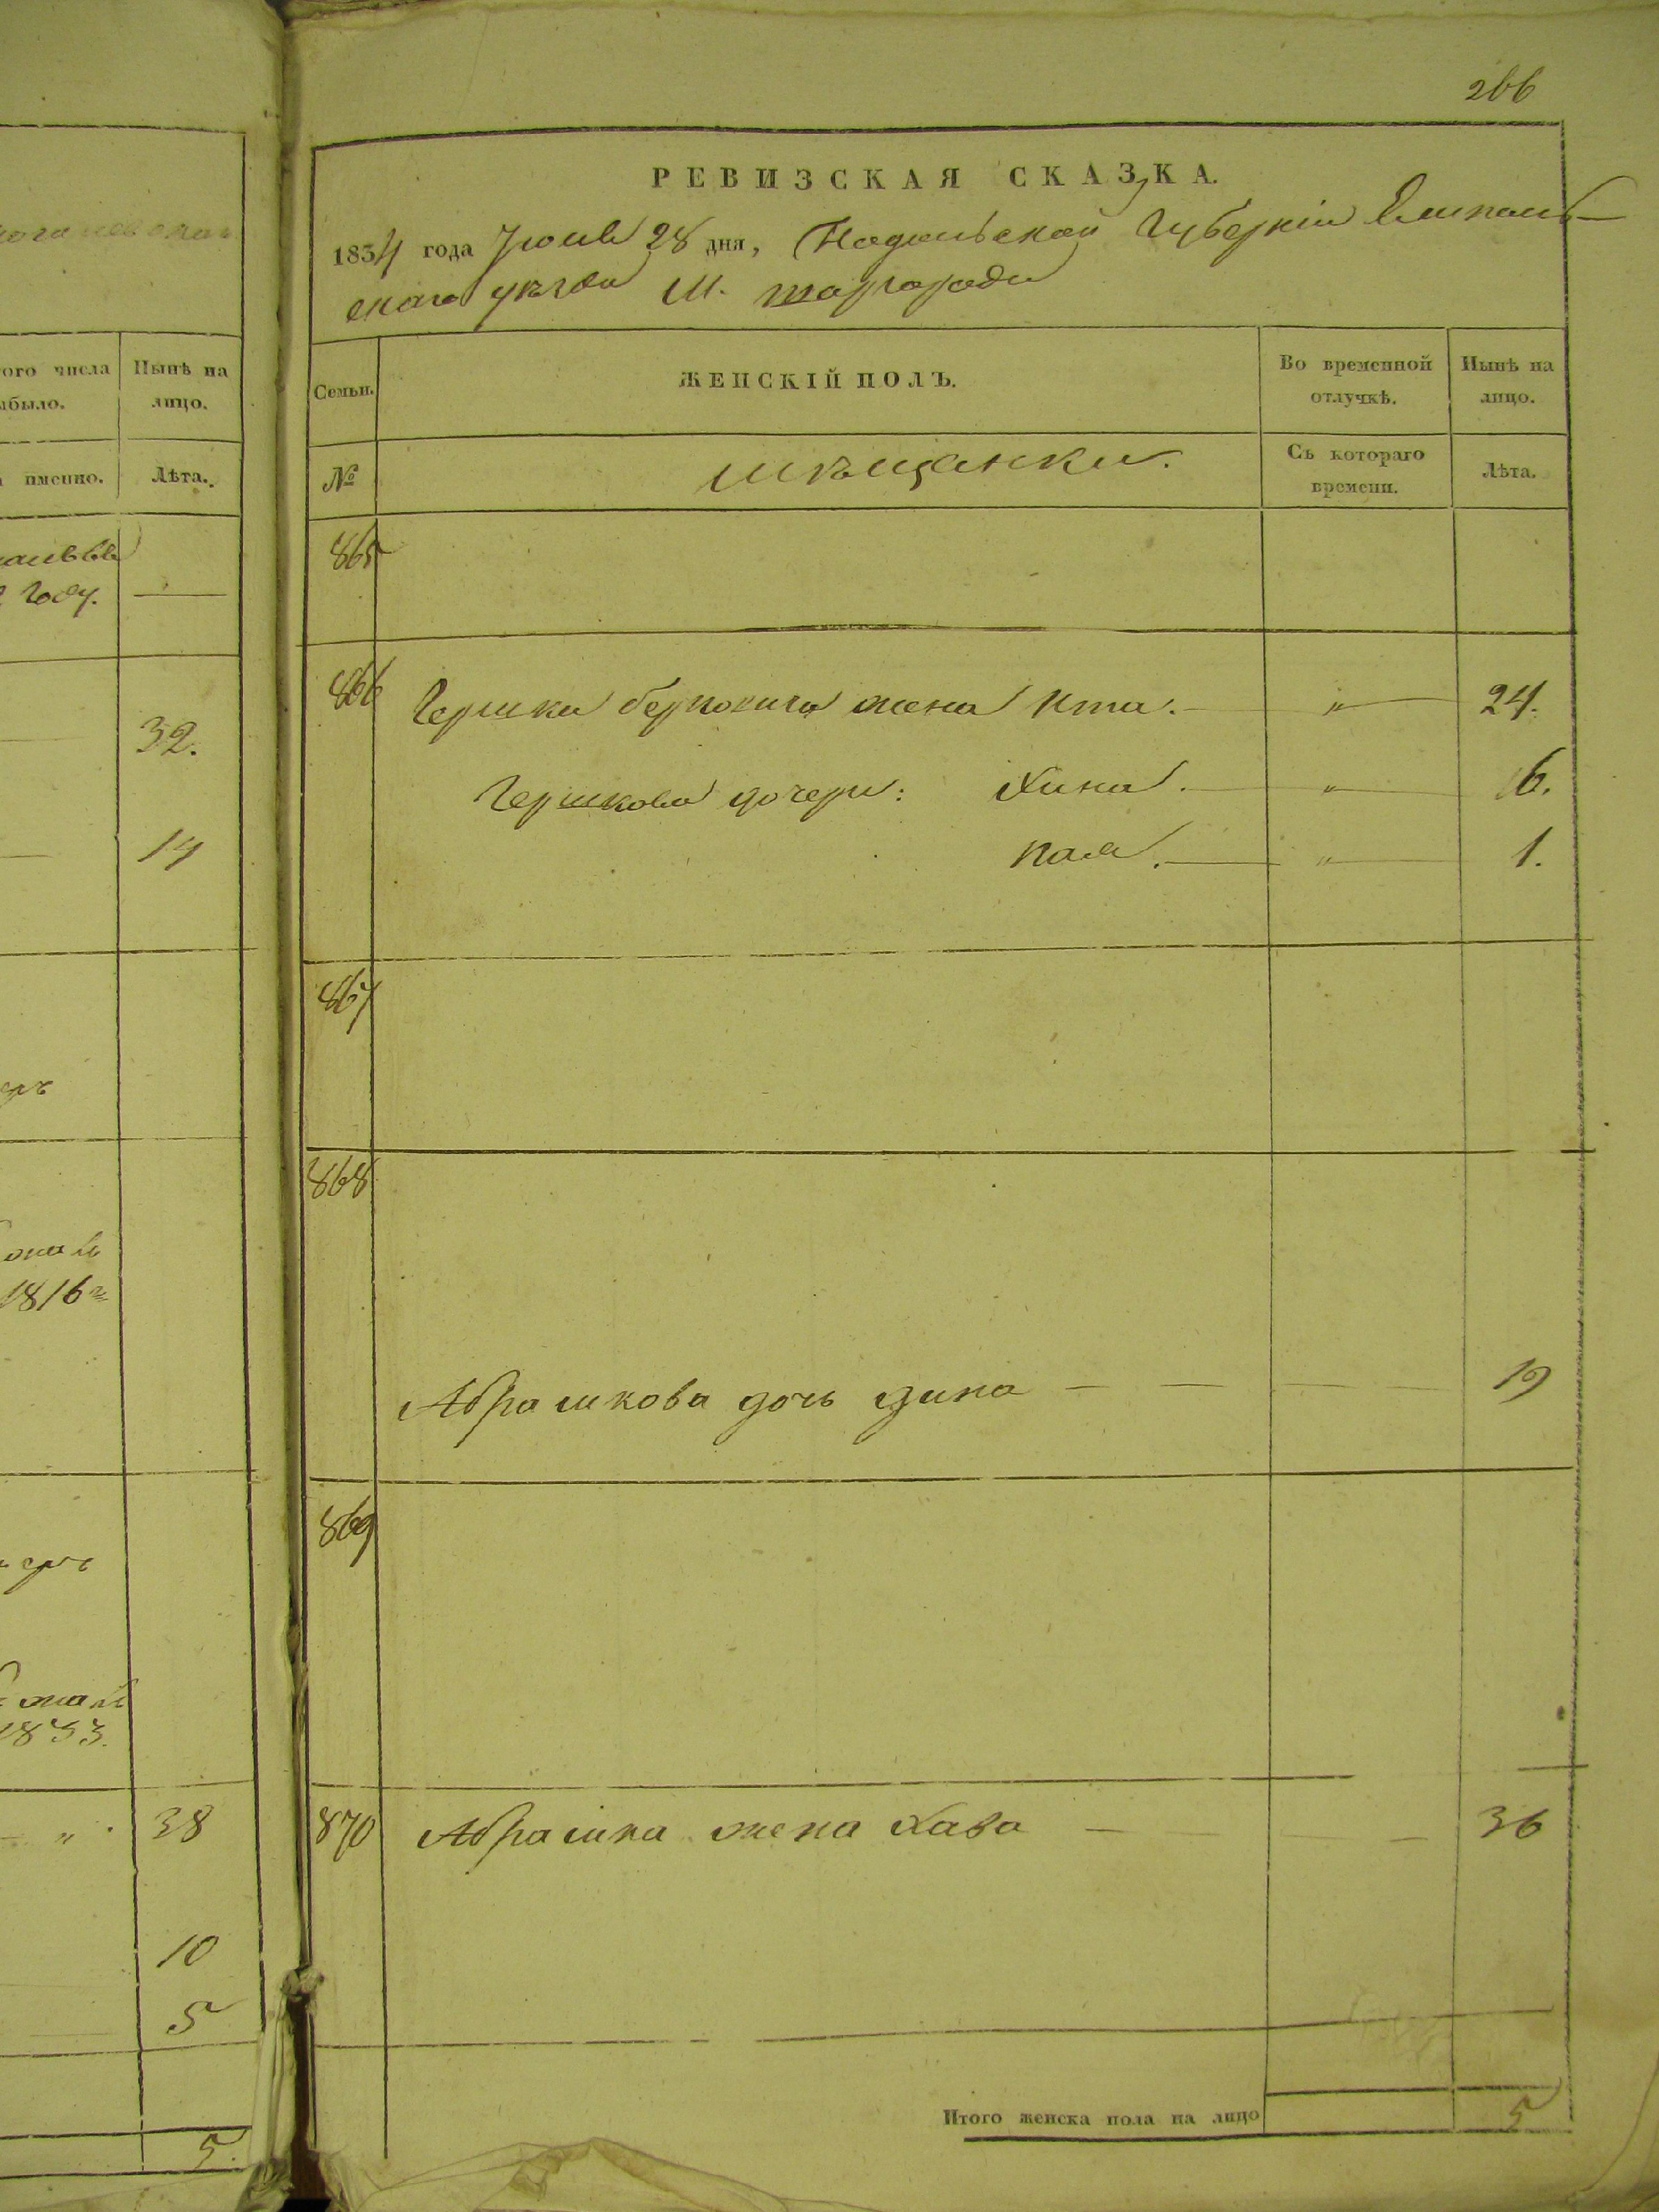 266
РЕВИЗСКАЯ СКАЗКА.
1834 года Июня 28 дня, Подольской Губерніи Ямполь-
скаго уѣзда М. Шаргорода
ого числа
Нынѣ на
было.
лицо.
именно.
Лѣта.
году.
32.
14
1816
1833.
38
10
5
5.
Семьи.
ЖЕНСКІЙ ПОЛЪ.
Во временной
отлучкѣ.
Нынѣ на
лицо.
№
Мѣщанки.
Съ котораго
времени.
Лѣта.
865
866 Гершка Берковича жена Ита. — „ — 24.
Гершкова дочери: Хина. — „ — 6.
„ — 1.
867
868
Абрашкова дочь Дина — — — 19
869
870 Абрашка жена Хава — — — 36
Итого женска пола на лицо 5